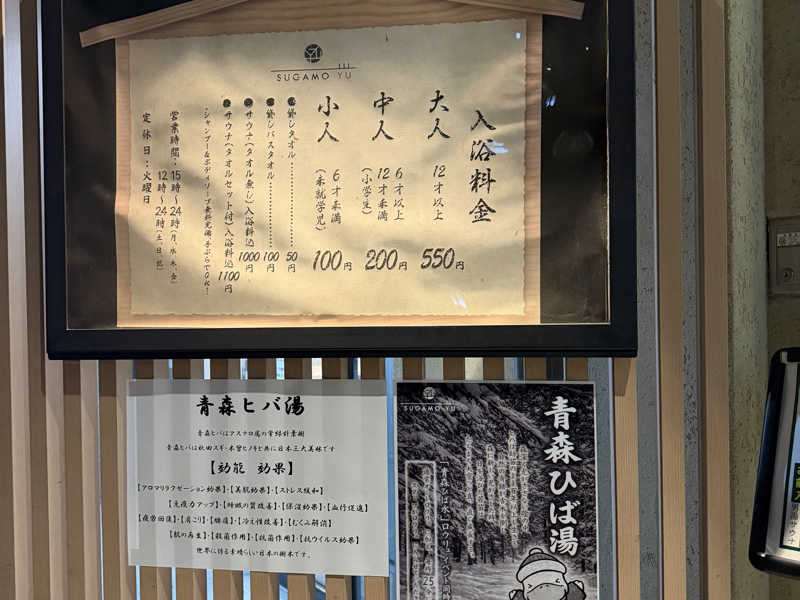 SUGAMO YU
入浴料金
大人 12才以上 550円
中人 6才以上 12才未満 (小学生) 200円
小人 6才未満 (未就学児) 100円
貸しタオル 50円
貸しバスタオル 100円
サウナ(タオル無し)入浴料込 1000円
サウナ(タオルセット付)入浴料込 1100円
・シャンプー&ボディソープ無料完備 手ぶらでOK!
営業時間:15時〜24時(月、水、木、金)
12時〜24時(土、日、祝)
定休日:火曜日
青森ヒバ湯
青森ヒバはアスナロ属の常緑針葉樹
青森ヒバは秋田スギ・木曽ヒノキと共に日本三大美林です
【効能 効果】
【アロマリラクゼーション効果】・【美肌効果】・【ストレス緩和】
【免疫力アップ】・【睡眠の質改善】・【保湿効果】・【血行促進】
【疲労回復】・【肩こり】・【腰痛】・【冷え性改善】・【むくみ解消】
【肌の再生】・【殺菌作用】・【抗菌作用】・【抗ウイルス効果】
世界に誇る素晴らしい日本の樹木です。
SUGAMO YU
青森ひば湯
25